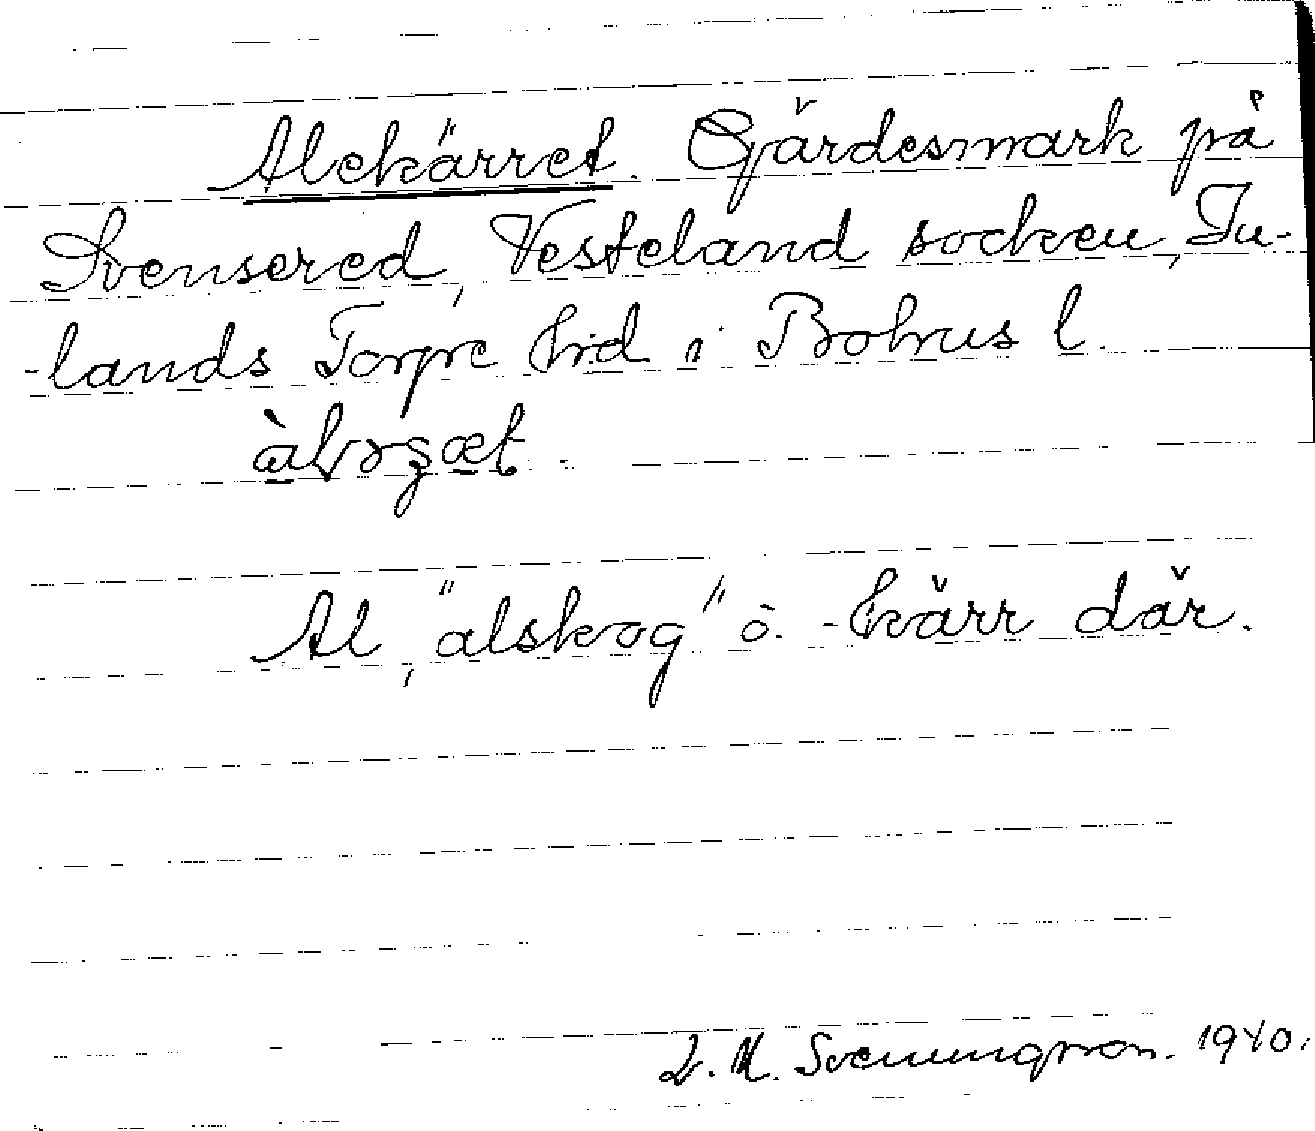 Alekärret. Gjärdesmark på
Svensered, Vesteland socken, In-
-lands Torpe hrd i Bohus l.
Al, "alskog" o. -kärr där.
Svenungsson. 1940.